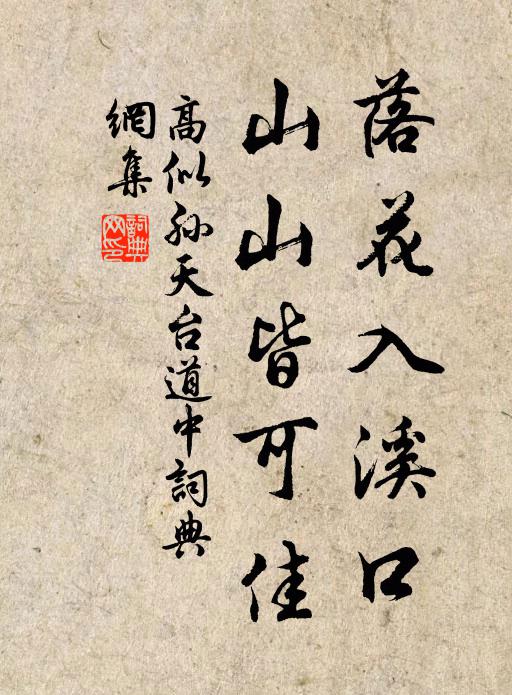 落花入溪口
山山皆可佳
高似孙天台道中詞典
網集
詞典
网印